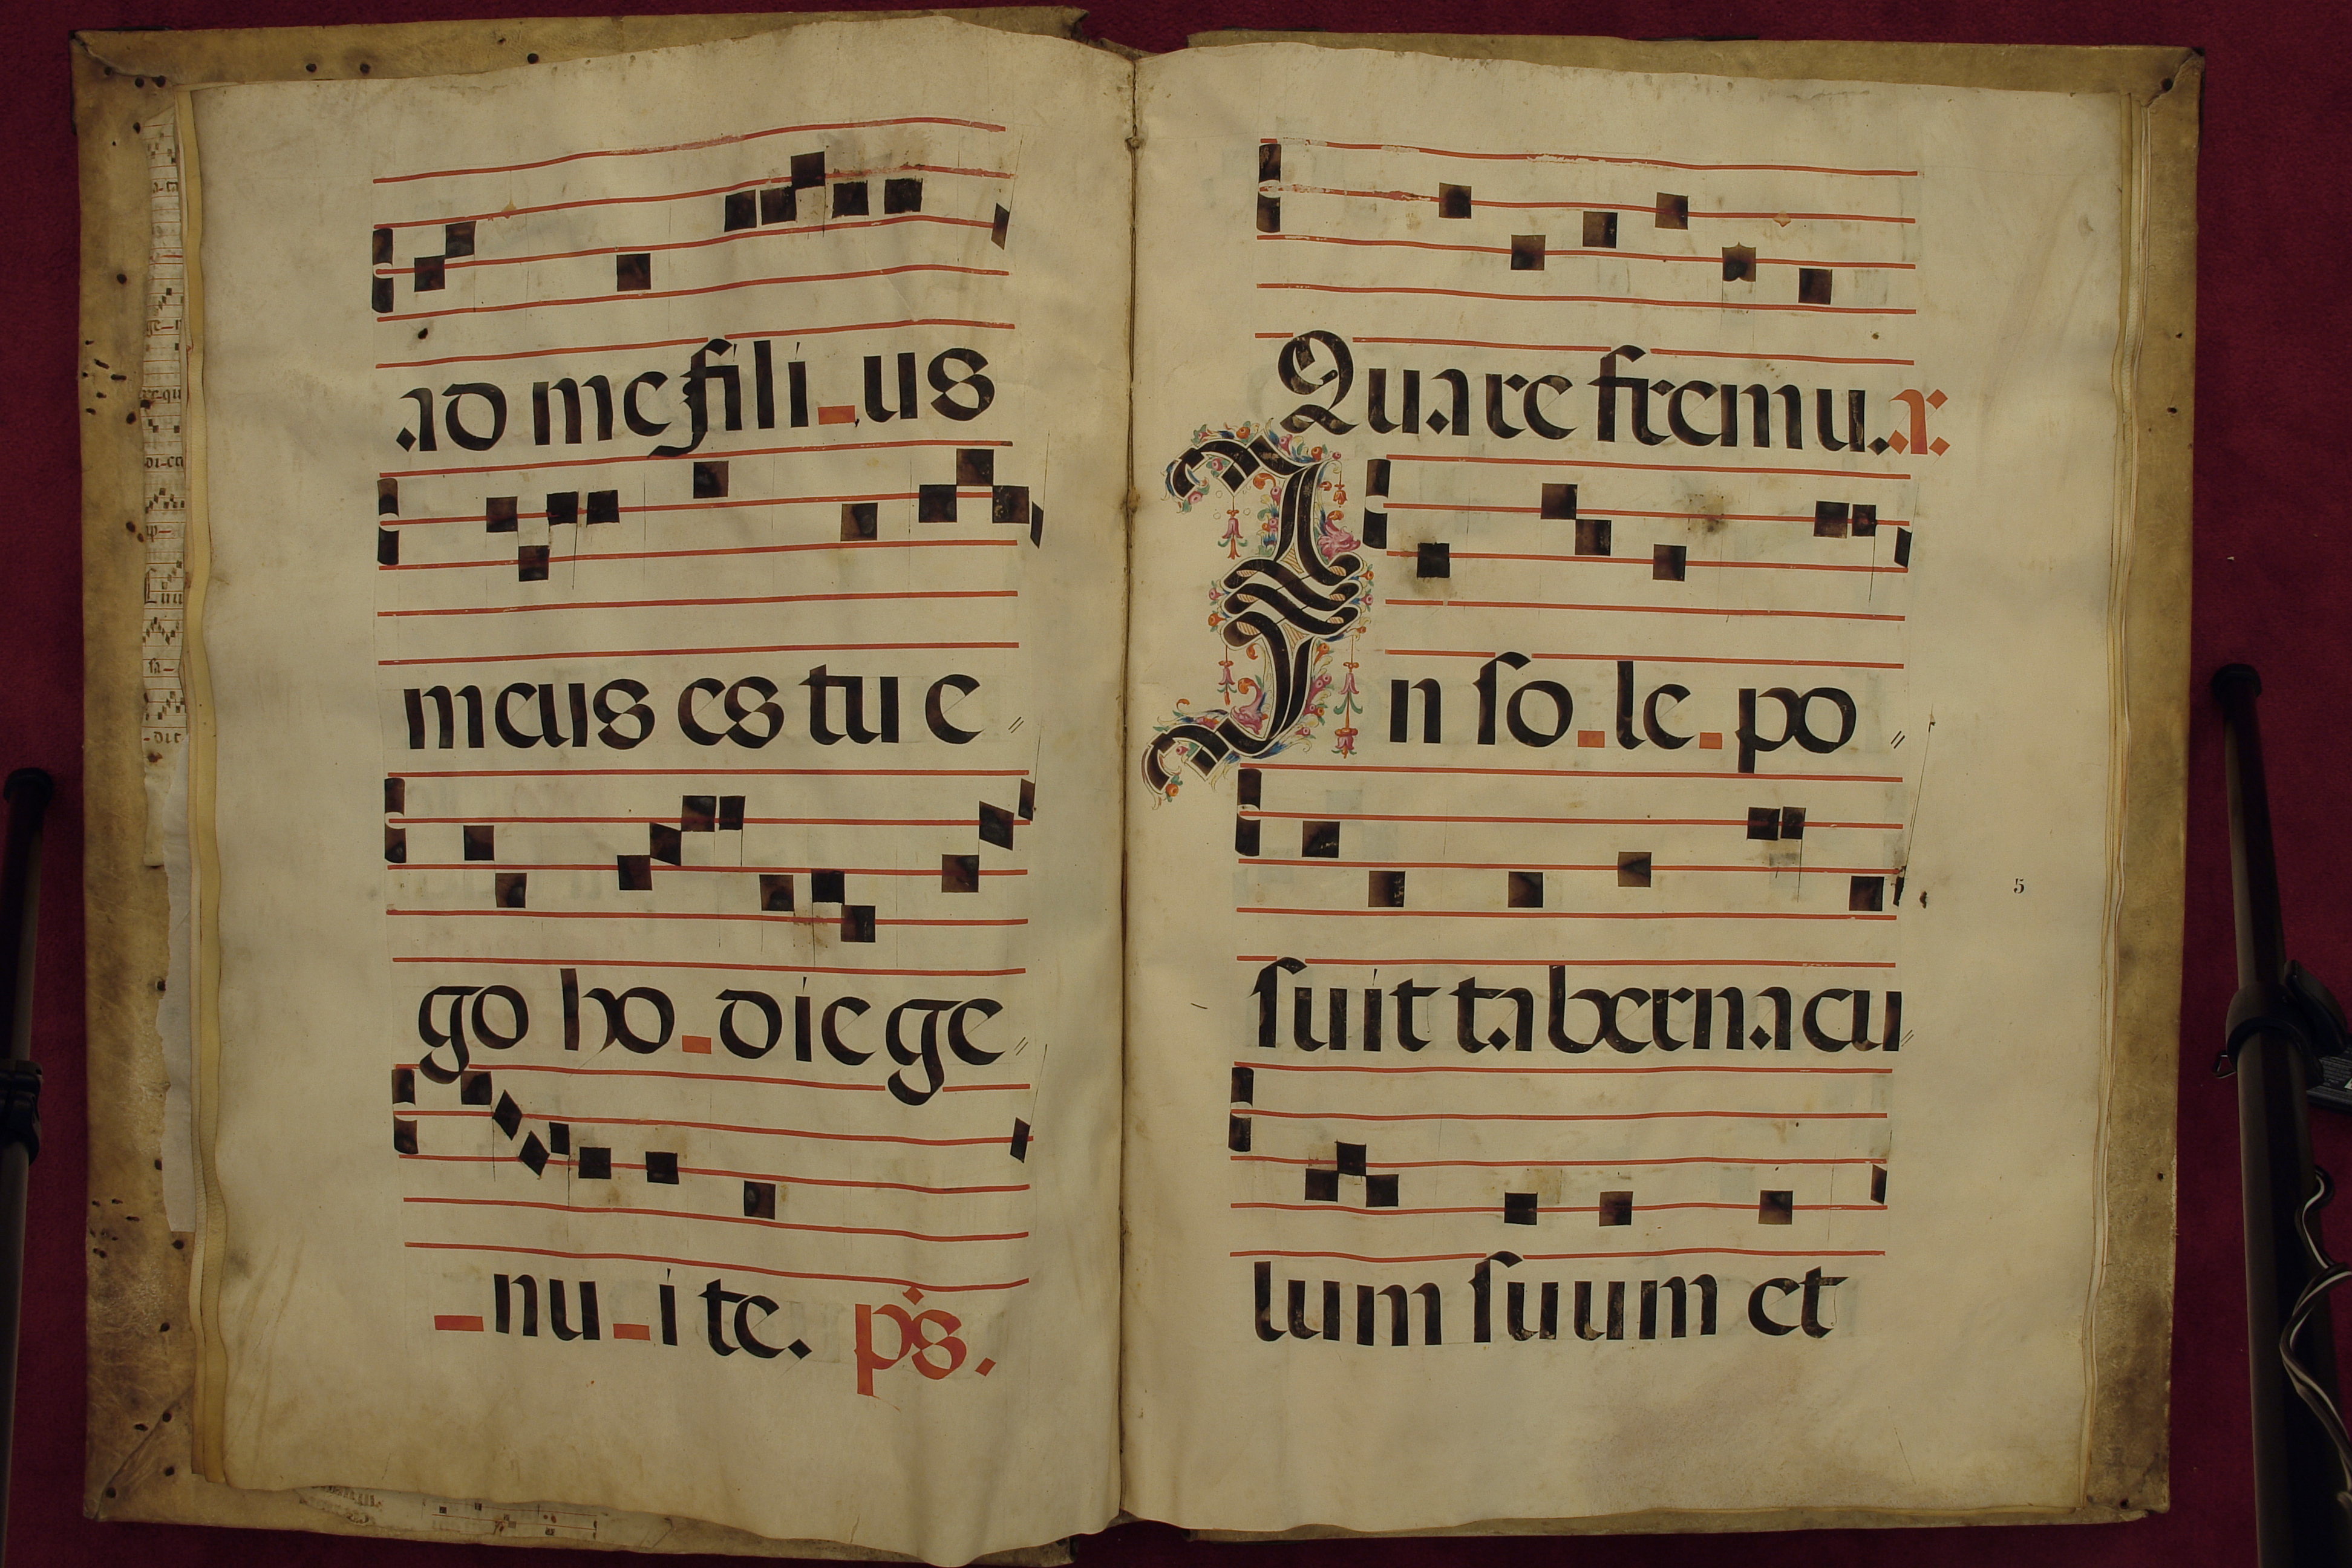 ad me fili-us
meus es tu e
go ho-die ge
-nu-i te. ps.
Quare fremu.x.
In so-le-po
suit tabernacu
lum suum et
5